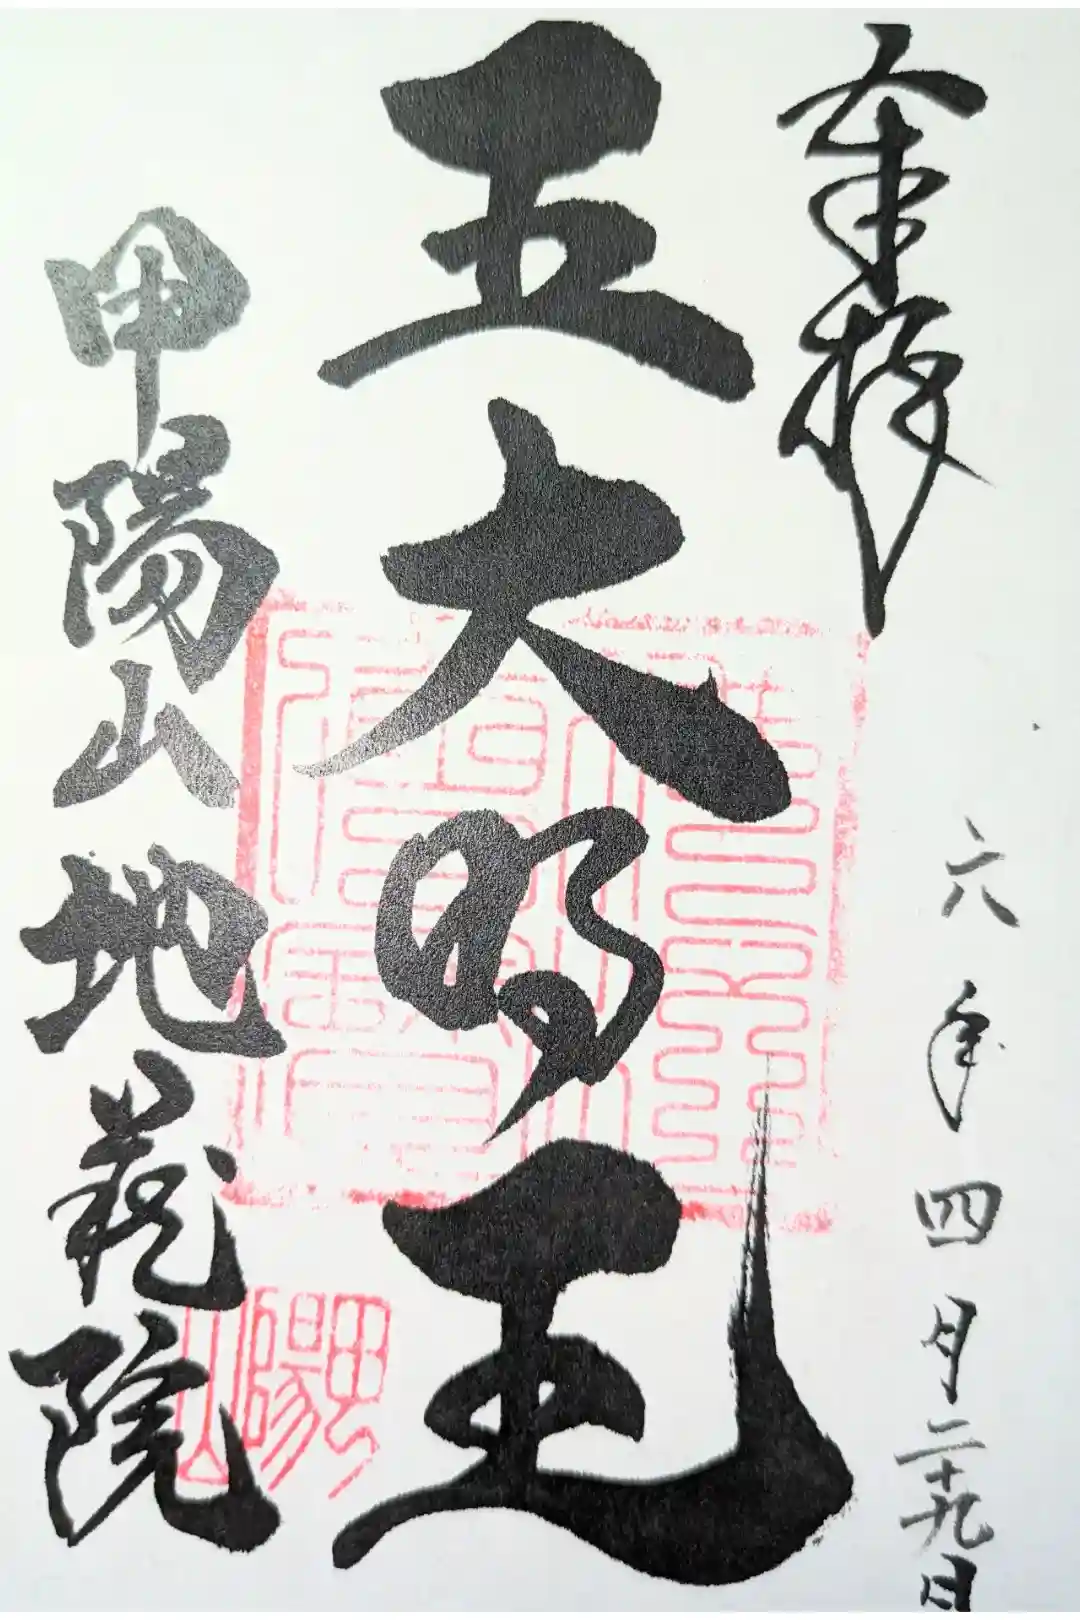 奉拝
六年四月二十九日
五大明王
甲陽山地蔵院
甲陽山